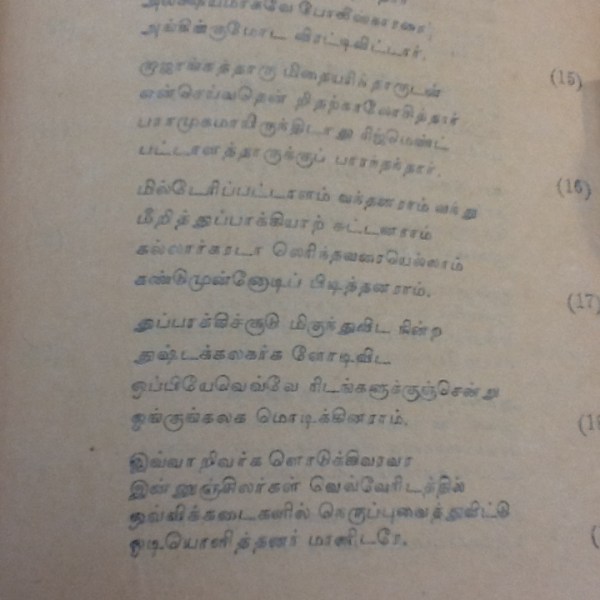 அலக்ஷியமாகவே போலீஸ்காரரை,
அங்கிங்குமோட விரட்டிவிட்டார்.
(15)
என்செய்வதென் றிதற்காலோசித்தார்
பராமுகமாயிருந்திடாது ரிஜிமெண்ட்
பட்டாளத்தாருக்குப் பாரந்தந்தார்.
(16)
மில்டேரிப்பட்டாளம் வந்தனராம் வந்து
மீறித்துப்பாக்கியாற் சுட்டனராம்
கல்லார்கரடா லெரிந்தவரையெல்லாம்
கண்டுமுன்னோடிப் பிடித்தனராம்.
(17)
துப்பாக்கிச்சூடு மிகுந்துவிட நின்ற
துஷ்டக்கலகர்க ளோடிவிட
ஒப்பியேவெவ்வே ரிடங்களுக்குஞ்சென்று
ஓங்குங்கலக மொடிக்கினராம்.
இவ்வா றிவர்க ளொடுக்கிவரவர
இன்னுஞ்சிலர்கள் வெவ்வேரிடத்தில்
ஒவ்விக்கடைகளில் நெருப்புவைத்துவிட்டு
ஓடியொளித்தனர் மானிடரே.